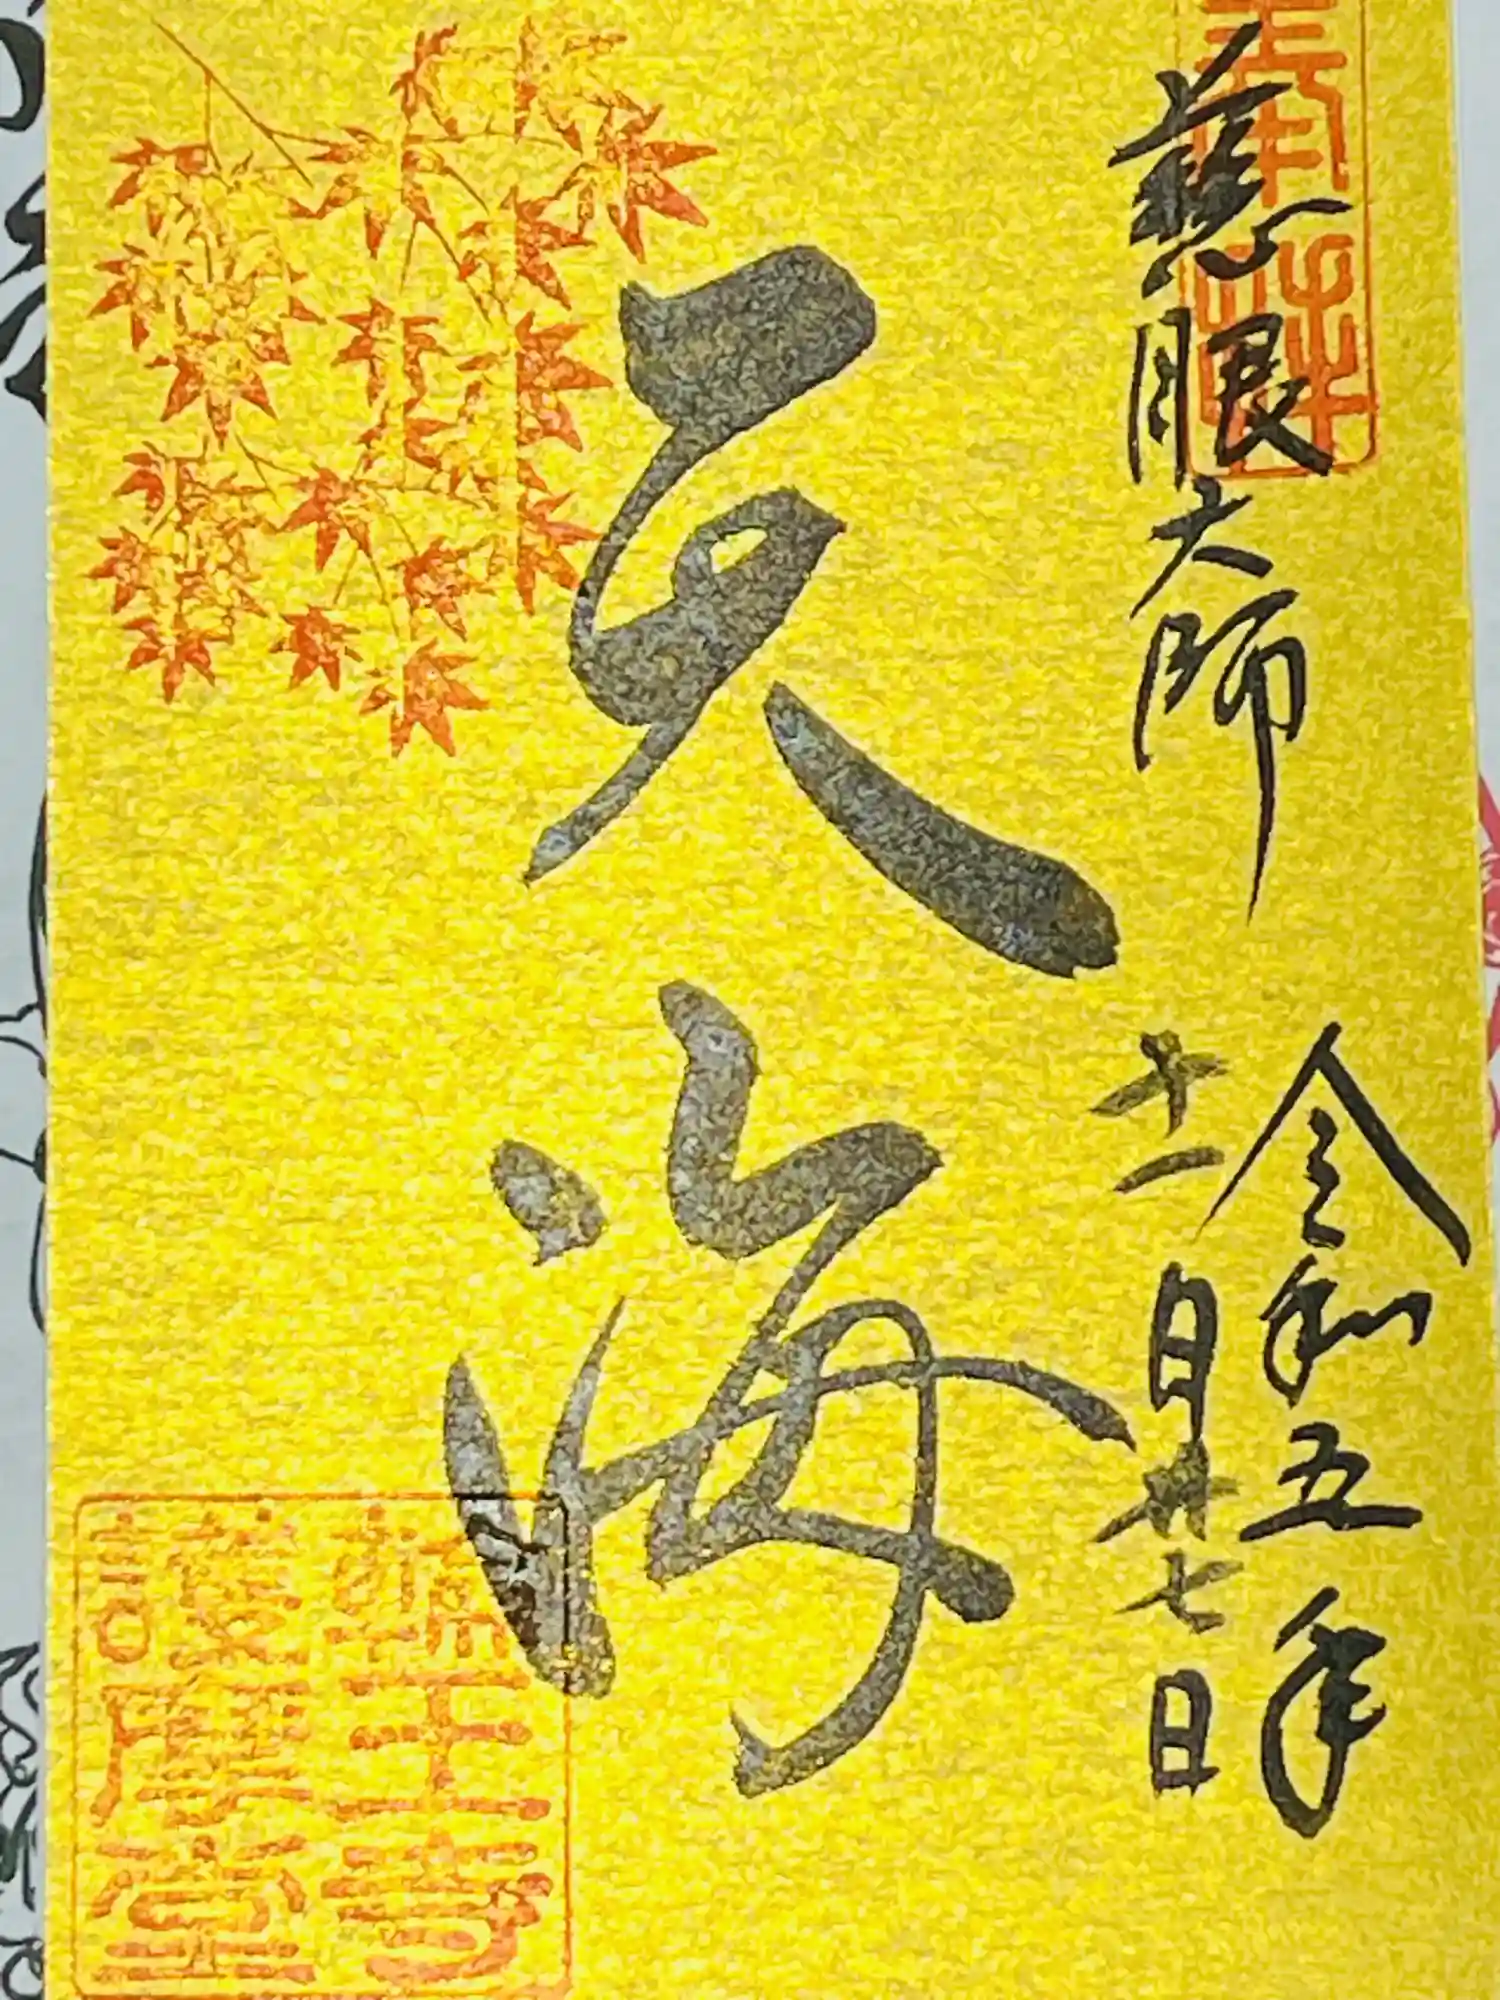 奉拝
慈眼大師
令和五年
十一月廿七日
天海